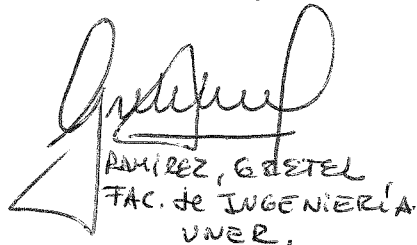 RAMÍREZ, GRETEL
FAC. de INGENIERÍA
UNER.